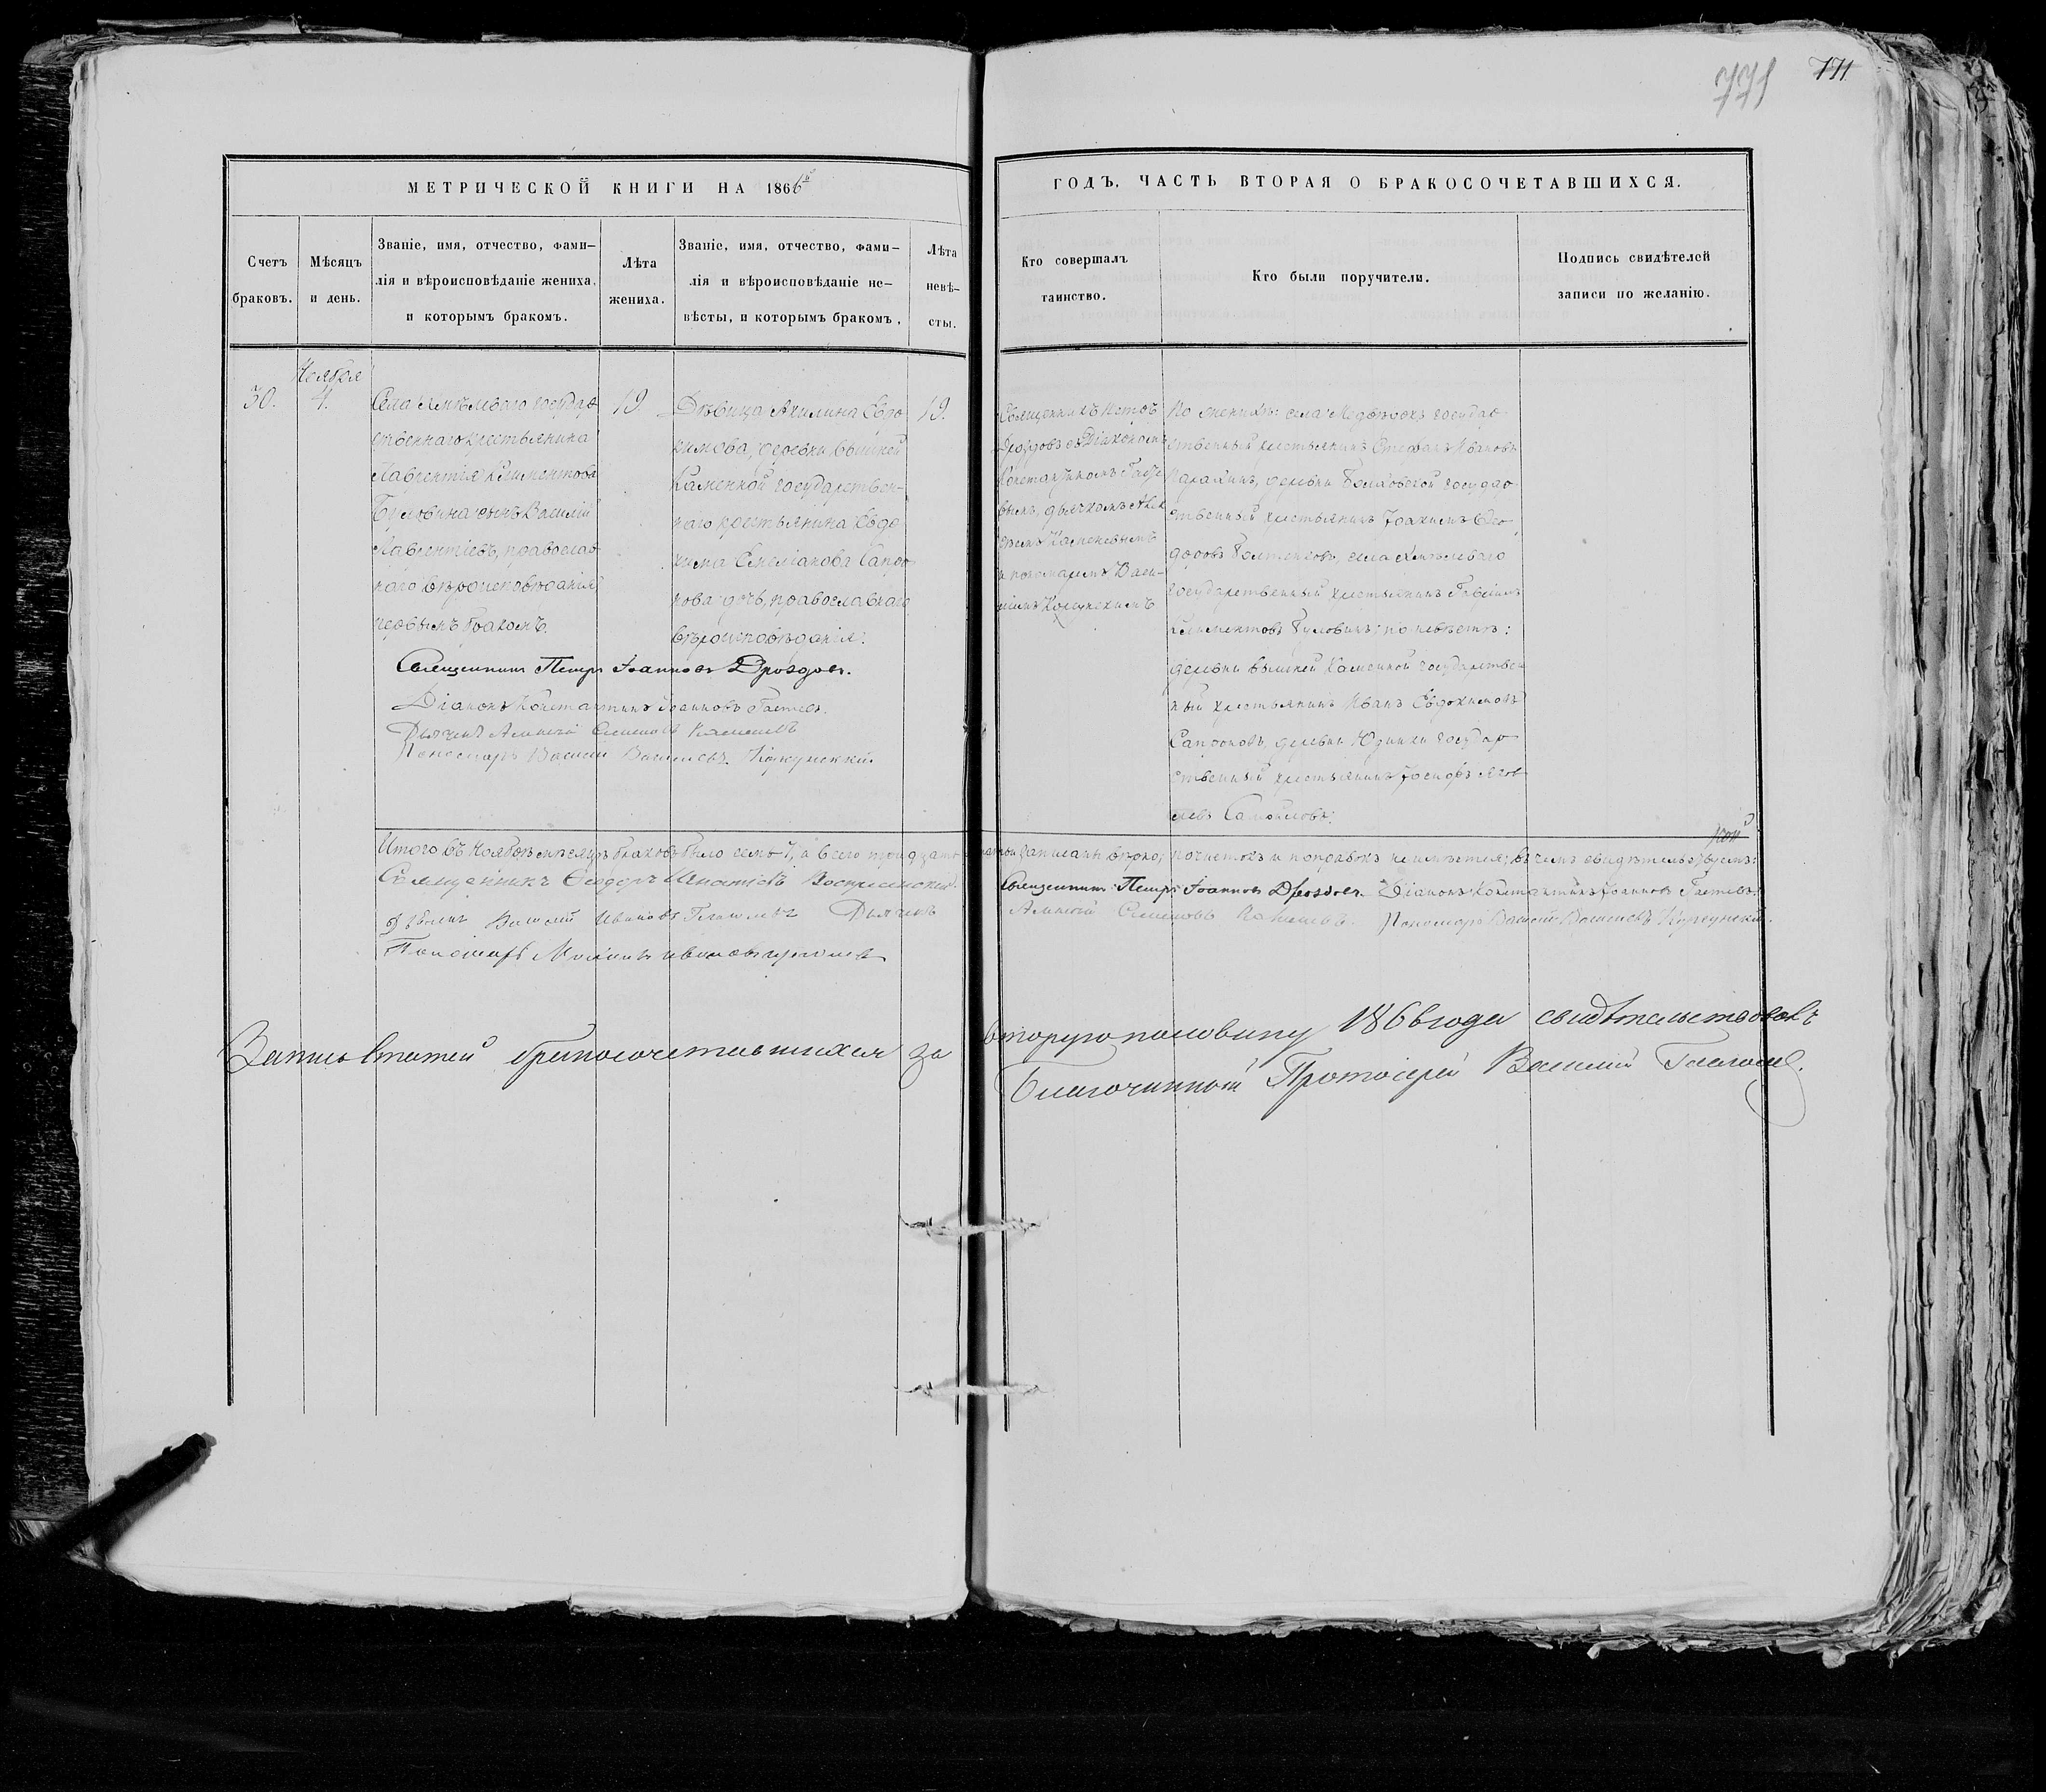 771 771
МЕТРИЧЕСКОЙ КНИГИ НА 1866й
ГОДЪ. ЧАСТЬ ВТОРАЯ О БРАКОСОЧЕТАВШИХСЯ.
Счетъ
браковъ.
Мѣсяцъ
и день.
Званіе, имя, отчество, фами–
лія и вѣроисповѣданіе жениха,
и которымъ бракомъ.
Лѣта
жениха.
Званіе, имя, отчество, фами–
лія и вѣроисповѣданіе не–
вѣсты, и которымъ бракомъ.
Лѣта
невѣ–
сты.
Кто совершалъ
таинство.
Кто были поручители.
Подпись свидѣтелей
записи по желанію.
30.
Ноября
4.
Села государ
ственнаго крестьянина
Лаврентія Климентова
Буловина сынъ Василій
Лаврентіевъ, православ
наго вѣроисповѣданія
первымъ бракомъ.
19.
Дѣвица Акилина Евдо
кимова, деревни Вышней
Каменной государствен-
наго крестьянина Евдо
кима Емеліанова Сапро
нова дочь, православнаго
вѣроисповѣданія.
19.
Священникъ Петръ
Дроздовъ съ Діакономъ
Константиномъ Гастe
вымъ, дьячкомъ Алек
сѣемъ
и пономаремъ Васи-
ліемъ Корсунскимъ
По женихѣ: села государ
ственный крестьянинъ Стефанъ Ивановъ
деревни государ
ственный крестьянинъ Іоакимъ Ѳео
доровъ села
государственный крестьянинъ Гавріилъ
Климентовъ Буловинъ; по невѣстѣ:
деревни Вышней Каменной государствен
ный крестьянинъ Иванъ Евдокимовъ
Сапроновъ, деревни Юдинки государ
ственный крестьянинъ Іосифъ
Самойловъ.
Священникъ Петръ Іоанновъ Дроздовъ.
Діаконъ Константинъ Іоанновъ Гастевъ.
Дьячекъ Алексій Семеновъ
Пономарь Василій Васильевъ Корсунскій.
Итого въ Ноябрѣ мѣсяцѣ браковъ было семь 7, а всего тридцать записаны вѣрно, почистокъ и поправокъ неимѣется; въ чемъ свидѣтельствуемъ:
Священникъ Ѳеодоръ Воскресенскій. Священникъ Петръ Іоанновъ Дроздовъ. Діаконъ Константинъ Іоанновъ Гастевъ.
Василій Ивановъ Дьячекъ Алексій Семеновъ Пономарь Василій Васильевъ Корсунскій.
Пономарь Ивановъ
Запись статей бракосочетавшихся за вторую половину 1866 года свидѣтельствовалъ
Благочинный Протоіерей Василій